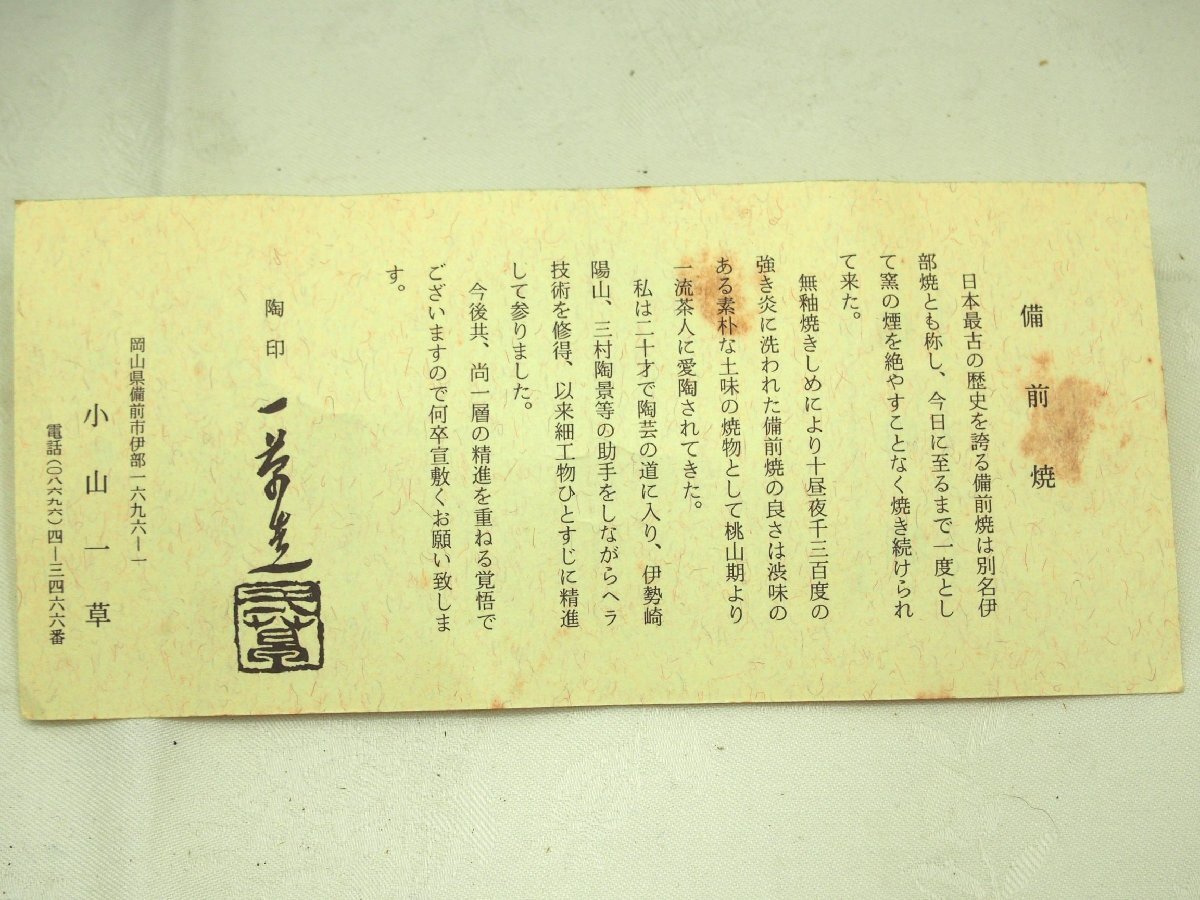 備前焼
日本最古の歴史を誇る備前焼は別名伊
部焼とも称し、今日に至るまで一度とし
て窯の煙を絶やすことなく焼き続けられ
て来た。
無釉焼きしめにより十昼夜千三百度の
強き炎に洗われた備前焼の良さは渋味の
ある素朴な土味の焼物として桃山期より
一流茶人に愛陶されてきた。
私は二十才で陶芸の道に入り、伊勢崎
陽山、三村陶景等の助手をしながらヘラ
技術を修得、以来細工物ひとすじに精進
して参りました。
今後共、尚一層の精進を重ねる覚悟で
ございますので何卒宣敷くお願い致しま
す。
陶印
一草造
岡山県備前市伊部一六九六ー一
小山一草
電話(〇八六九六)四ー三四六六番